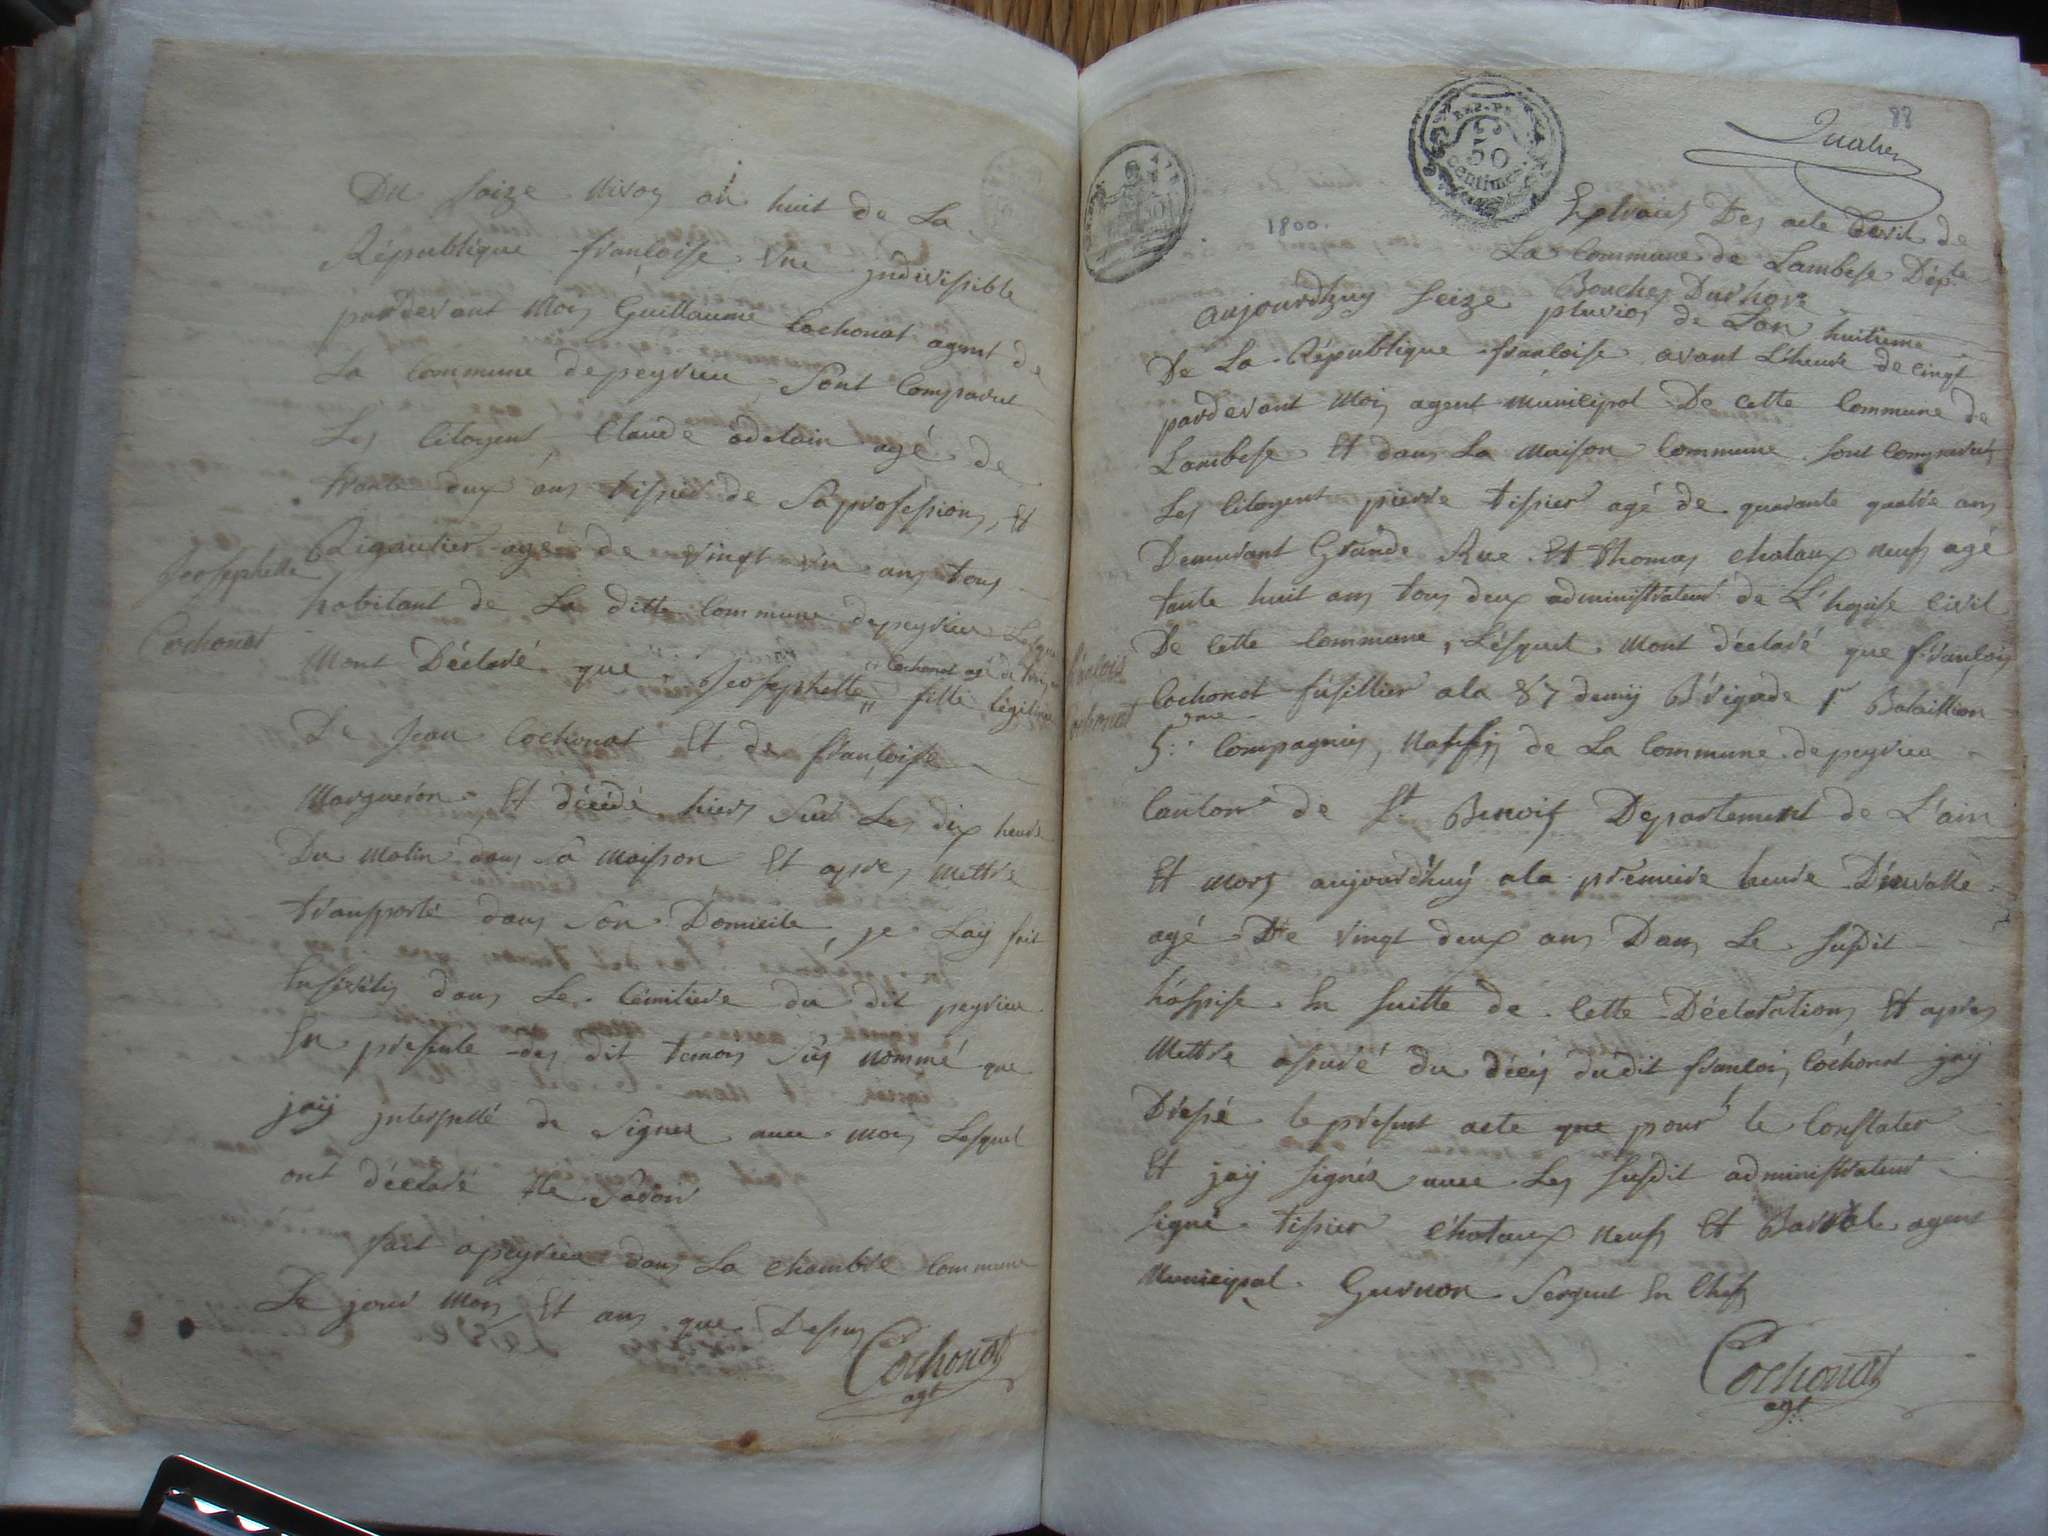 Du seize nivos an huit de La
République francoise une jndivisible
pardevant Moy Guillaume Cochonat agent de
La Commune depeyrieu, Sont Comparut
Les Citoyent, Claude adelain agé de
trante deux ans tissier de Saprofession, Et
Rigautier agé de vingt un ans tous
habitant de La ditte Commune depeyrieu Lesquel
Mont Déclaré que Joosephette " Cochonat agé de
" fille légitime
De Jean Cochonat Et de francoise
Margueron Et décédé hiers sur Les dix heure
Du Matin dans sa Maison Et apres Mettre
transporté dans Son Domicile, je Laÿ fait
Enseveliy dans Le Cémitiere du dit peyrieu
En presente des dit temoy sus nommé que
jaÿ jnterpellé de Signer avec moy Lesquel
ont déclaré Ne Savoir
fait apeyrieu dans La Chambre Commune
Le jour Mois Et ans que Dessus
Cochonat
agt
Joosephette
Cochonat
88
REP.
50
centimes
1800.
Extrait Des acte Civil de
La Commune de Lambese Dépte
Bouches Durhone
aujourdhuy Seize pluvios de Lan huitieme
De La République francoise avant L'heure de cinqt
pardevant Moy agent Municipal De cette Commune de
Lambese Et dans La Maison Commune Sont Comparut
Les Citoyent pierre tissier agé de quarante quatre ans
Demeurant Grande Rue Et thomas chataux neuf agé
tante huit ans tous deux administrateur de L'hopise Civil
De cette Commune, Lésquel Mont déclaré que françois
Cochonat fusillier ala 87 demij Brigade 1r Bataillion
5:me Compagniy, Natifs de La Commune depeyrieu
Canton de St Benoit Departement de L'ain
Et mort aujourdhuÿ ala prémiere heure
agé De vingt deux ans Dans Le Susdit
hospise En Suitte de Cette Déclaration Et apres
Mettre assuré du décéy dudit francois Cochonat jaÿ
Dréssé le présent acte que pour le Constater
Et jaÿ Signér avec Les Susdit administrateur
Signé tissier Chataux neuf Et Barral agent
Municipal Guenon Sergent En Chef
Cochonat
agt
francois
Cochonat